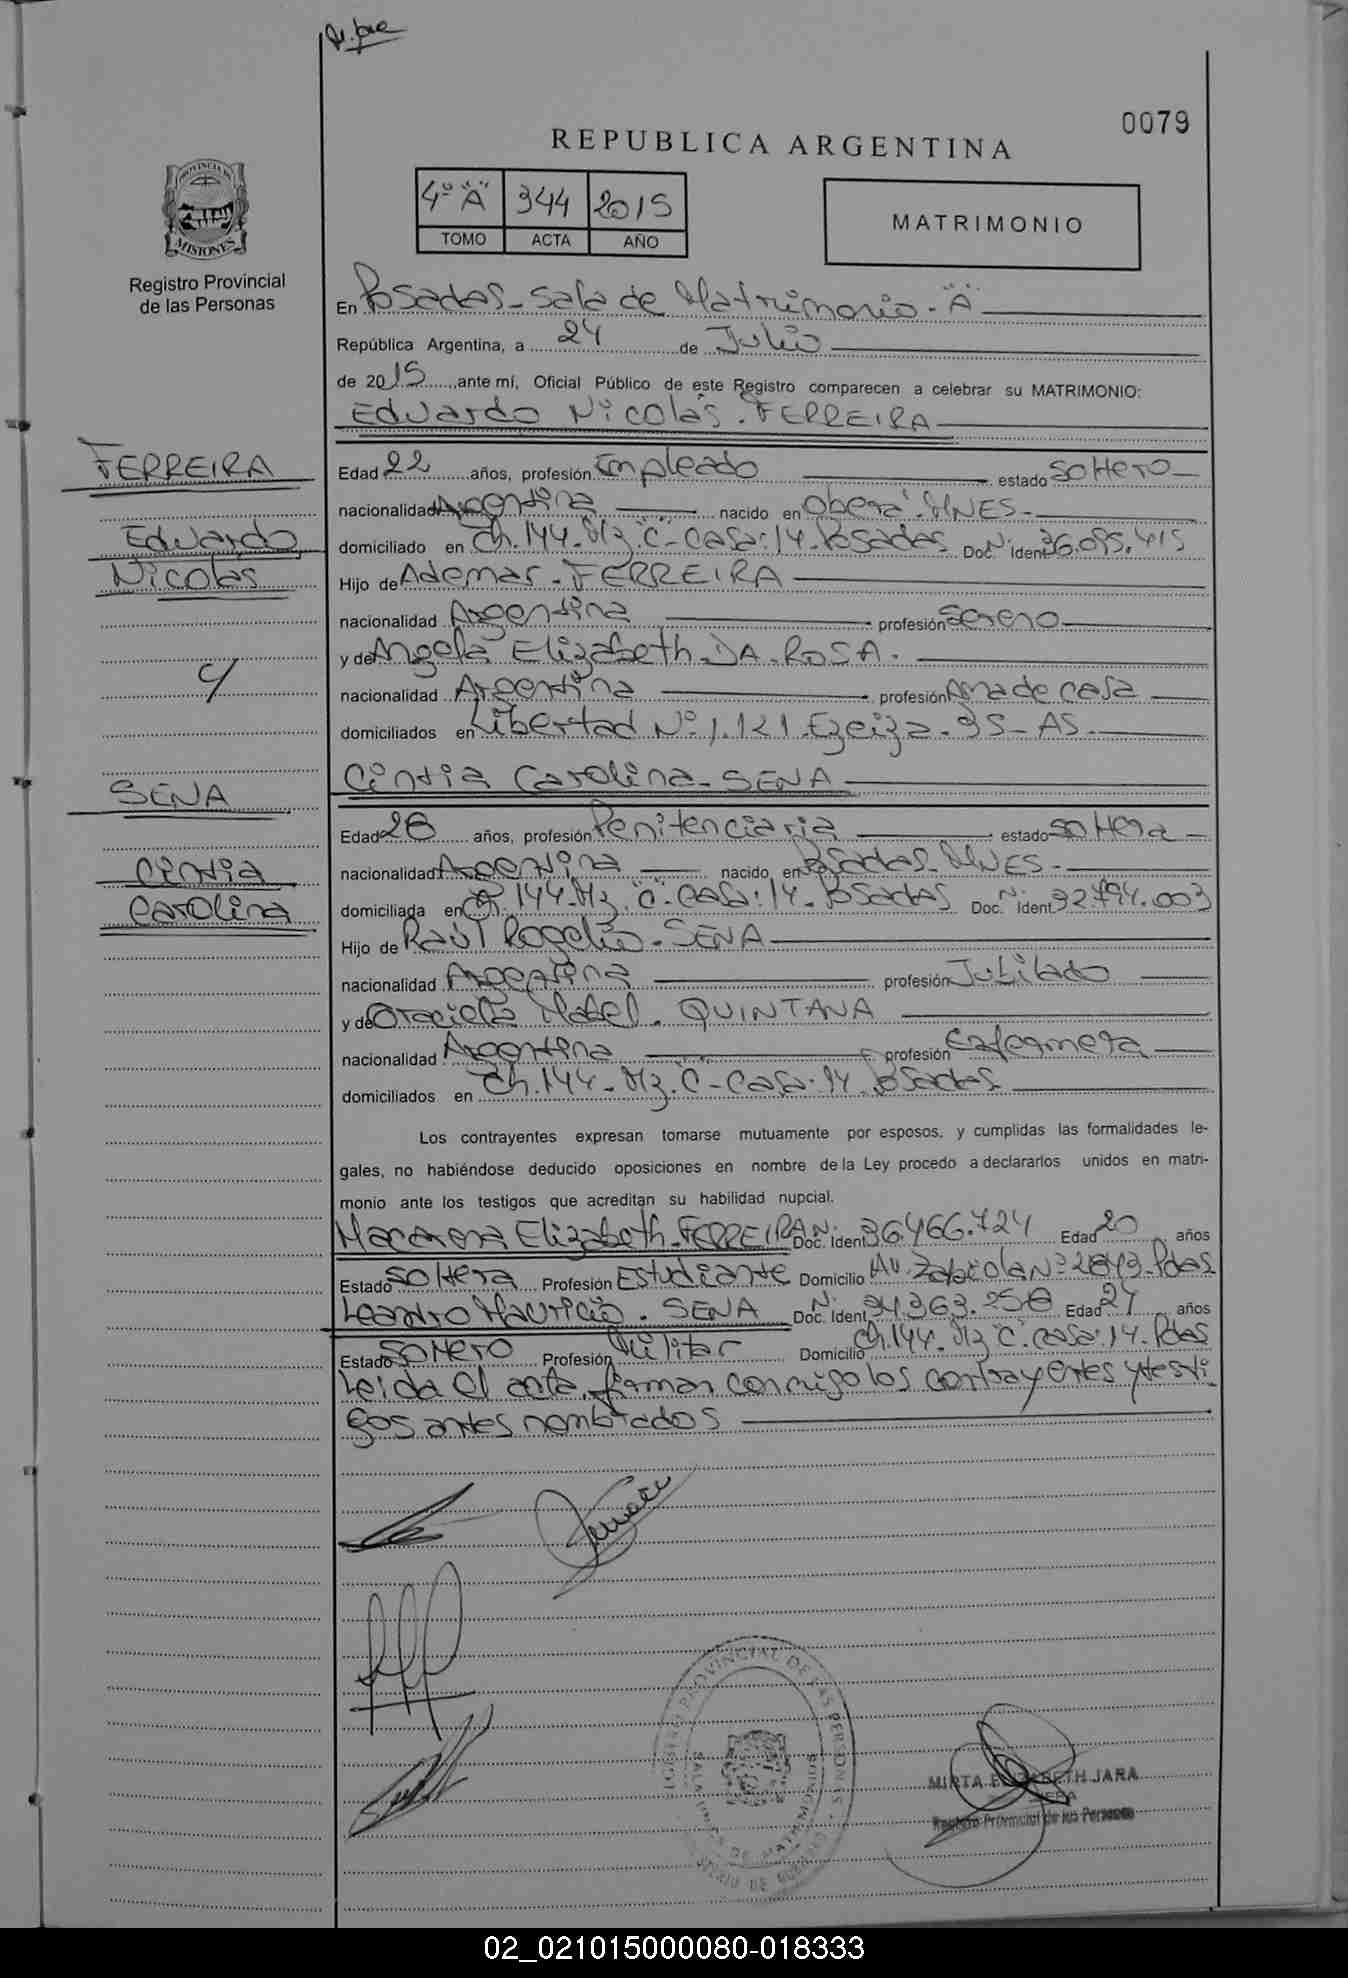 0079
REPUBLICA ARGENTINA
4º "A" 344 2015
TOMO ACTA AÑO
MATRIMONIO
PROVINCIA DE MISIONES
Registro Provincial
de las Personas
En Posadas - Sala de Matrimonio - "A"
República Argentina, a 24 de Julio
de 2015, ante mí, Oficial Público de este Registro comparecen a celebrar su MATRIMONIO:
Eduardo Nicolás. FERREIRA
FERREIRA
Eduardo
Nicolás
Edad 22 años, profesión Empleado estado soltero
nacionalidad Argentina nacido en Oberá - MNES.
domiciliado en Ch. 144. Mz. "C" - casa: 14. Posadas Doc. Nº Ident. 36.095.415
Hijo de Ademar - FERREIRA
nacionalidad Argentina profesión sereno
y de Angela Elizabeth. DA. ROSA.
nacionalidad Argentina profesión Ama de casa
domiciliados en Libertad Nº 1.121. Ezeiza - BS - AS.
Cintia Carolina - SENA
y
SENA
Cintia
Carolina
Edad 28 años, profesión Penitenciaria estado soltera
nacionalidad Argentina nacido en Posadas - MNES -
domiciliada en Ch. 144. Mz. "C". casa: 14. Posadas Doc. Nº Ident. 32.794.003
Hijo de Raúl Rogelio - SENA
nacionalidad Argentina profesión Jubilado
y de Graciela Mabel. QUINTANA
nacionalidad Argentina profesión Enfermera
domiciliados en Ch. 144 - Mz. "C" - Casa: 14. Posadas
Los contrayentes expresan tomarse mutuamente por esposos, y cumplidas las formalidades le-
gales, no habiéndose deducido oposiciones en nombre de la Ley procedo a declararlos unidos en matri-
monio ante los testigos que acreditan su habilidad nupcial.
Macarena Elizabeth - FERREIRA Doc. Nº Ident. 36.466.724 Edad 20 años
Estado soltera Profesión Estudiante Domicilio Av. Nº Pdas
Leandro Mauricio. SENA Doc. Nº Ident. 34.363.258 Edad 27 años
Estado soltero Profesión Militar Domicilio Ch. 144. Mz "C". casa: 14. Pdas
Leida el acta, firman conmigo los contrayentes y testi
gos antes nombrados
REGISTRO PROVINCIAL DE LAS PERSONAS
MIRTA ELIZABETH JARA
JEFA
Registro Provincial de las Personas
02_021015000080-018333